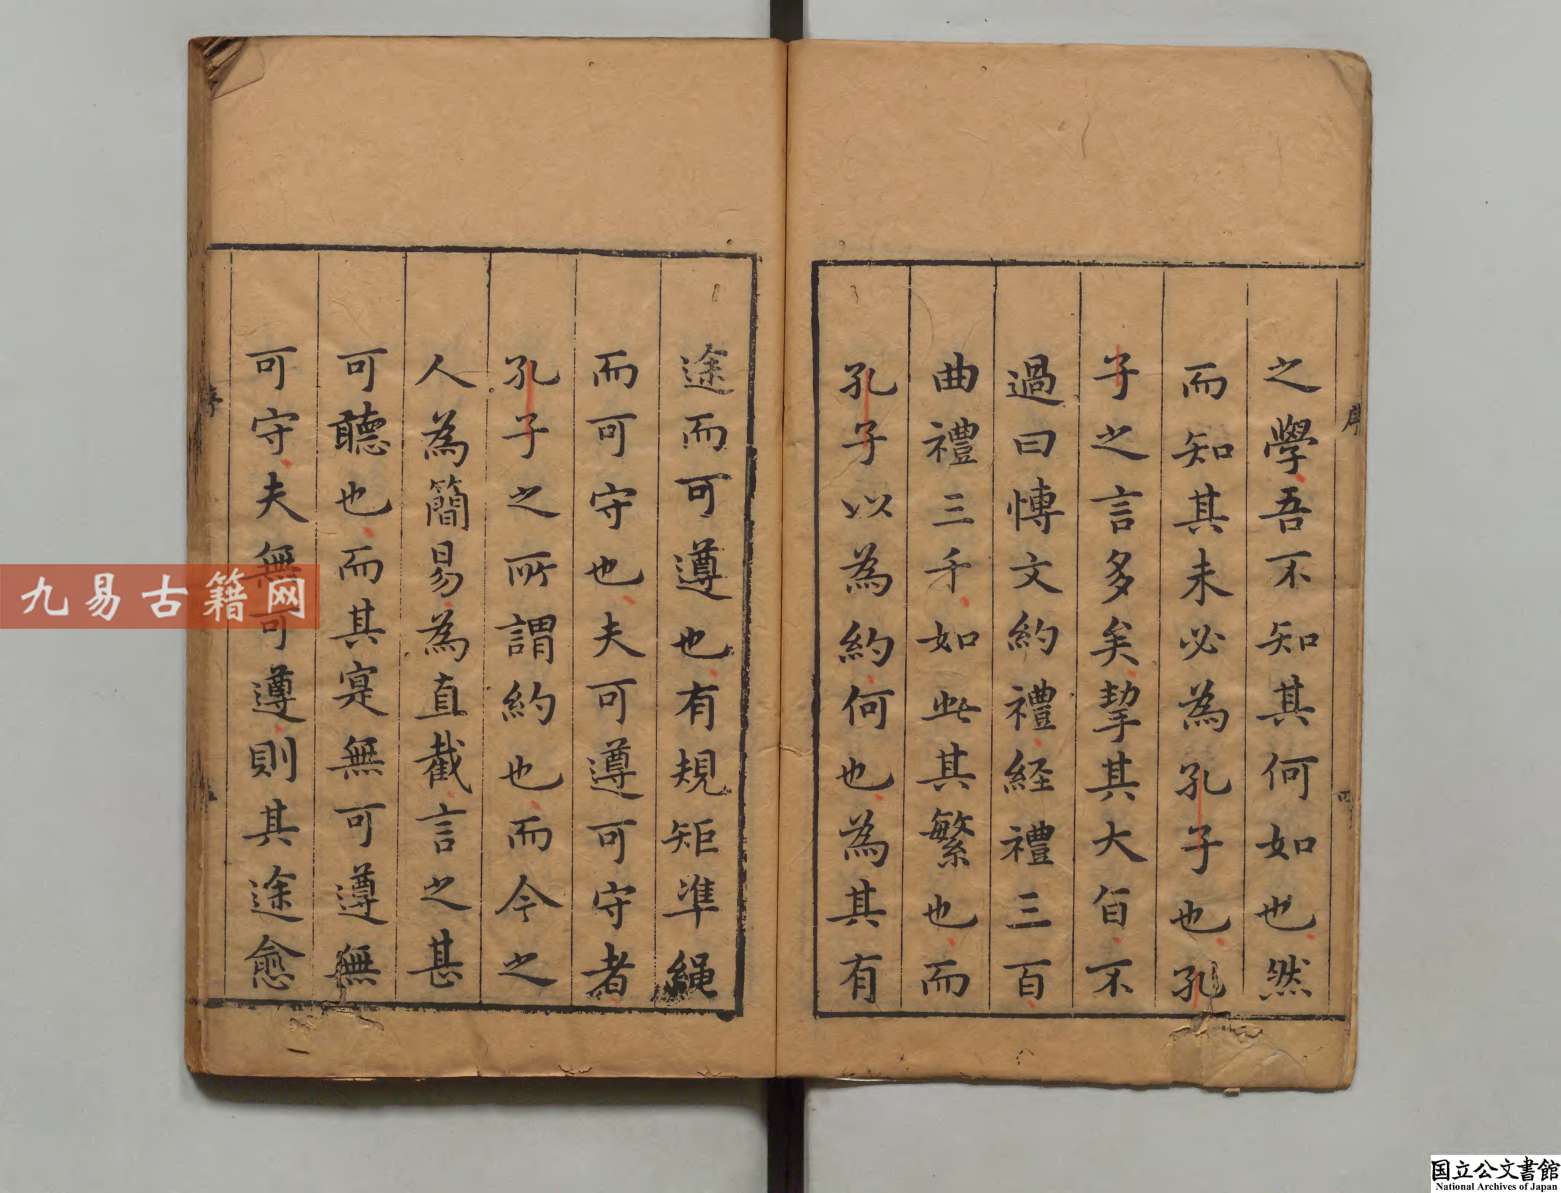 之學吾不知其何如也然
而知其未必為孔子也孔
子之言多矣挈其大旨不
過曰博文約禮経禮三百
曲禮三千如此其繁也而
孔子以為約何也為其有
途而可遵也有規矩準繩
而可守也夫可遵可守者
孔子之所謂約也而今之
人為簡易為直截言之甚
可聽也而其寔無可遵無
可守夫無可遵則其途愈
序
四
序
九易古籍网
国立公文書館
National Archives of Japan